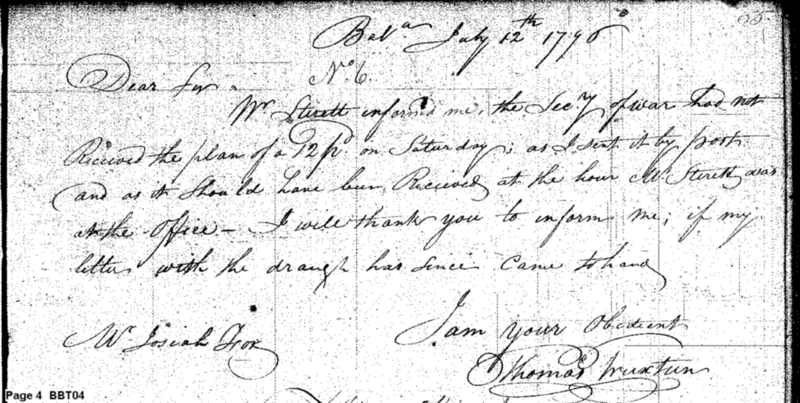 Balᵃ July 12th 1796
No. 6.
Dear Sir
Mr Sterett informed me, the Secy of war had not
Recieved the plan of a 12 pd on Saturday; as I sent it by post
and as it should have been Recieved at the hour Mr Sterett was
at the office – I will thank you to inform me; if my
letter with the draugh has since came to hand
I am your Obedient
Mr Josiah Fox
Thomas Truxtun
Page 4 BBT04